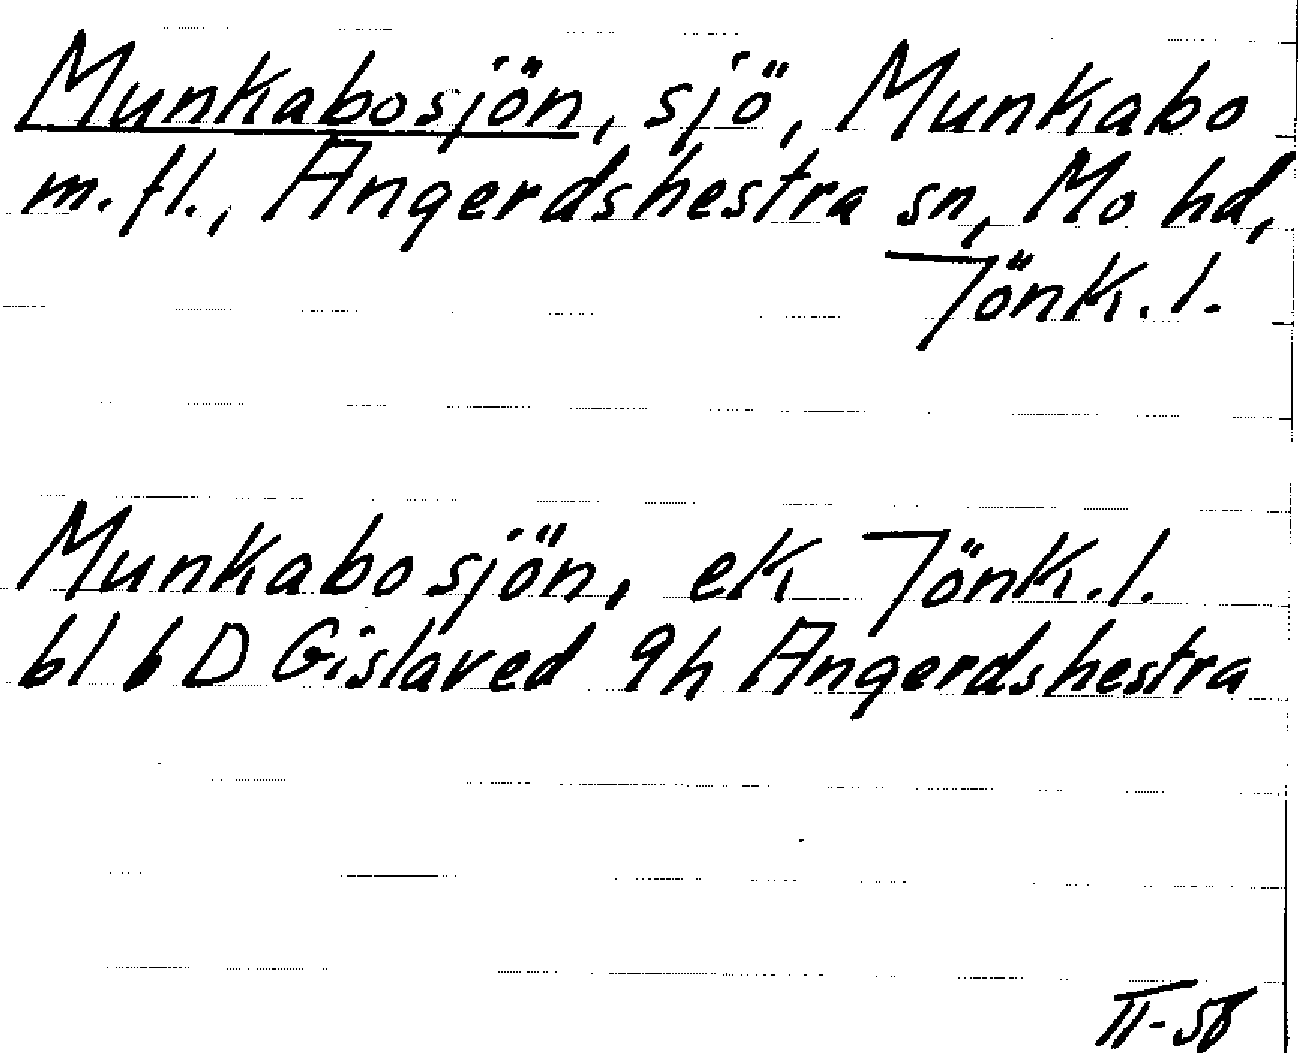 Munkabosjön, sjö, Munkabo
m.fl., Angerdshestra sn, Mo hd,
Jönk. l.
Munkabosjön, ek Jönk. l.
bl 6 D Gislaved 9h Angerdshestra
II-58